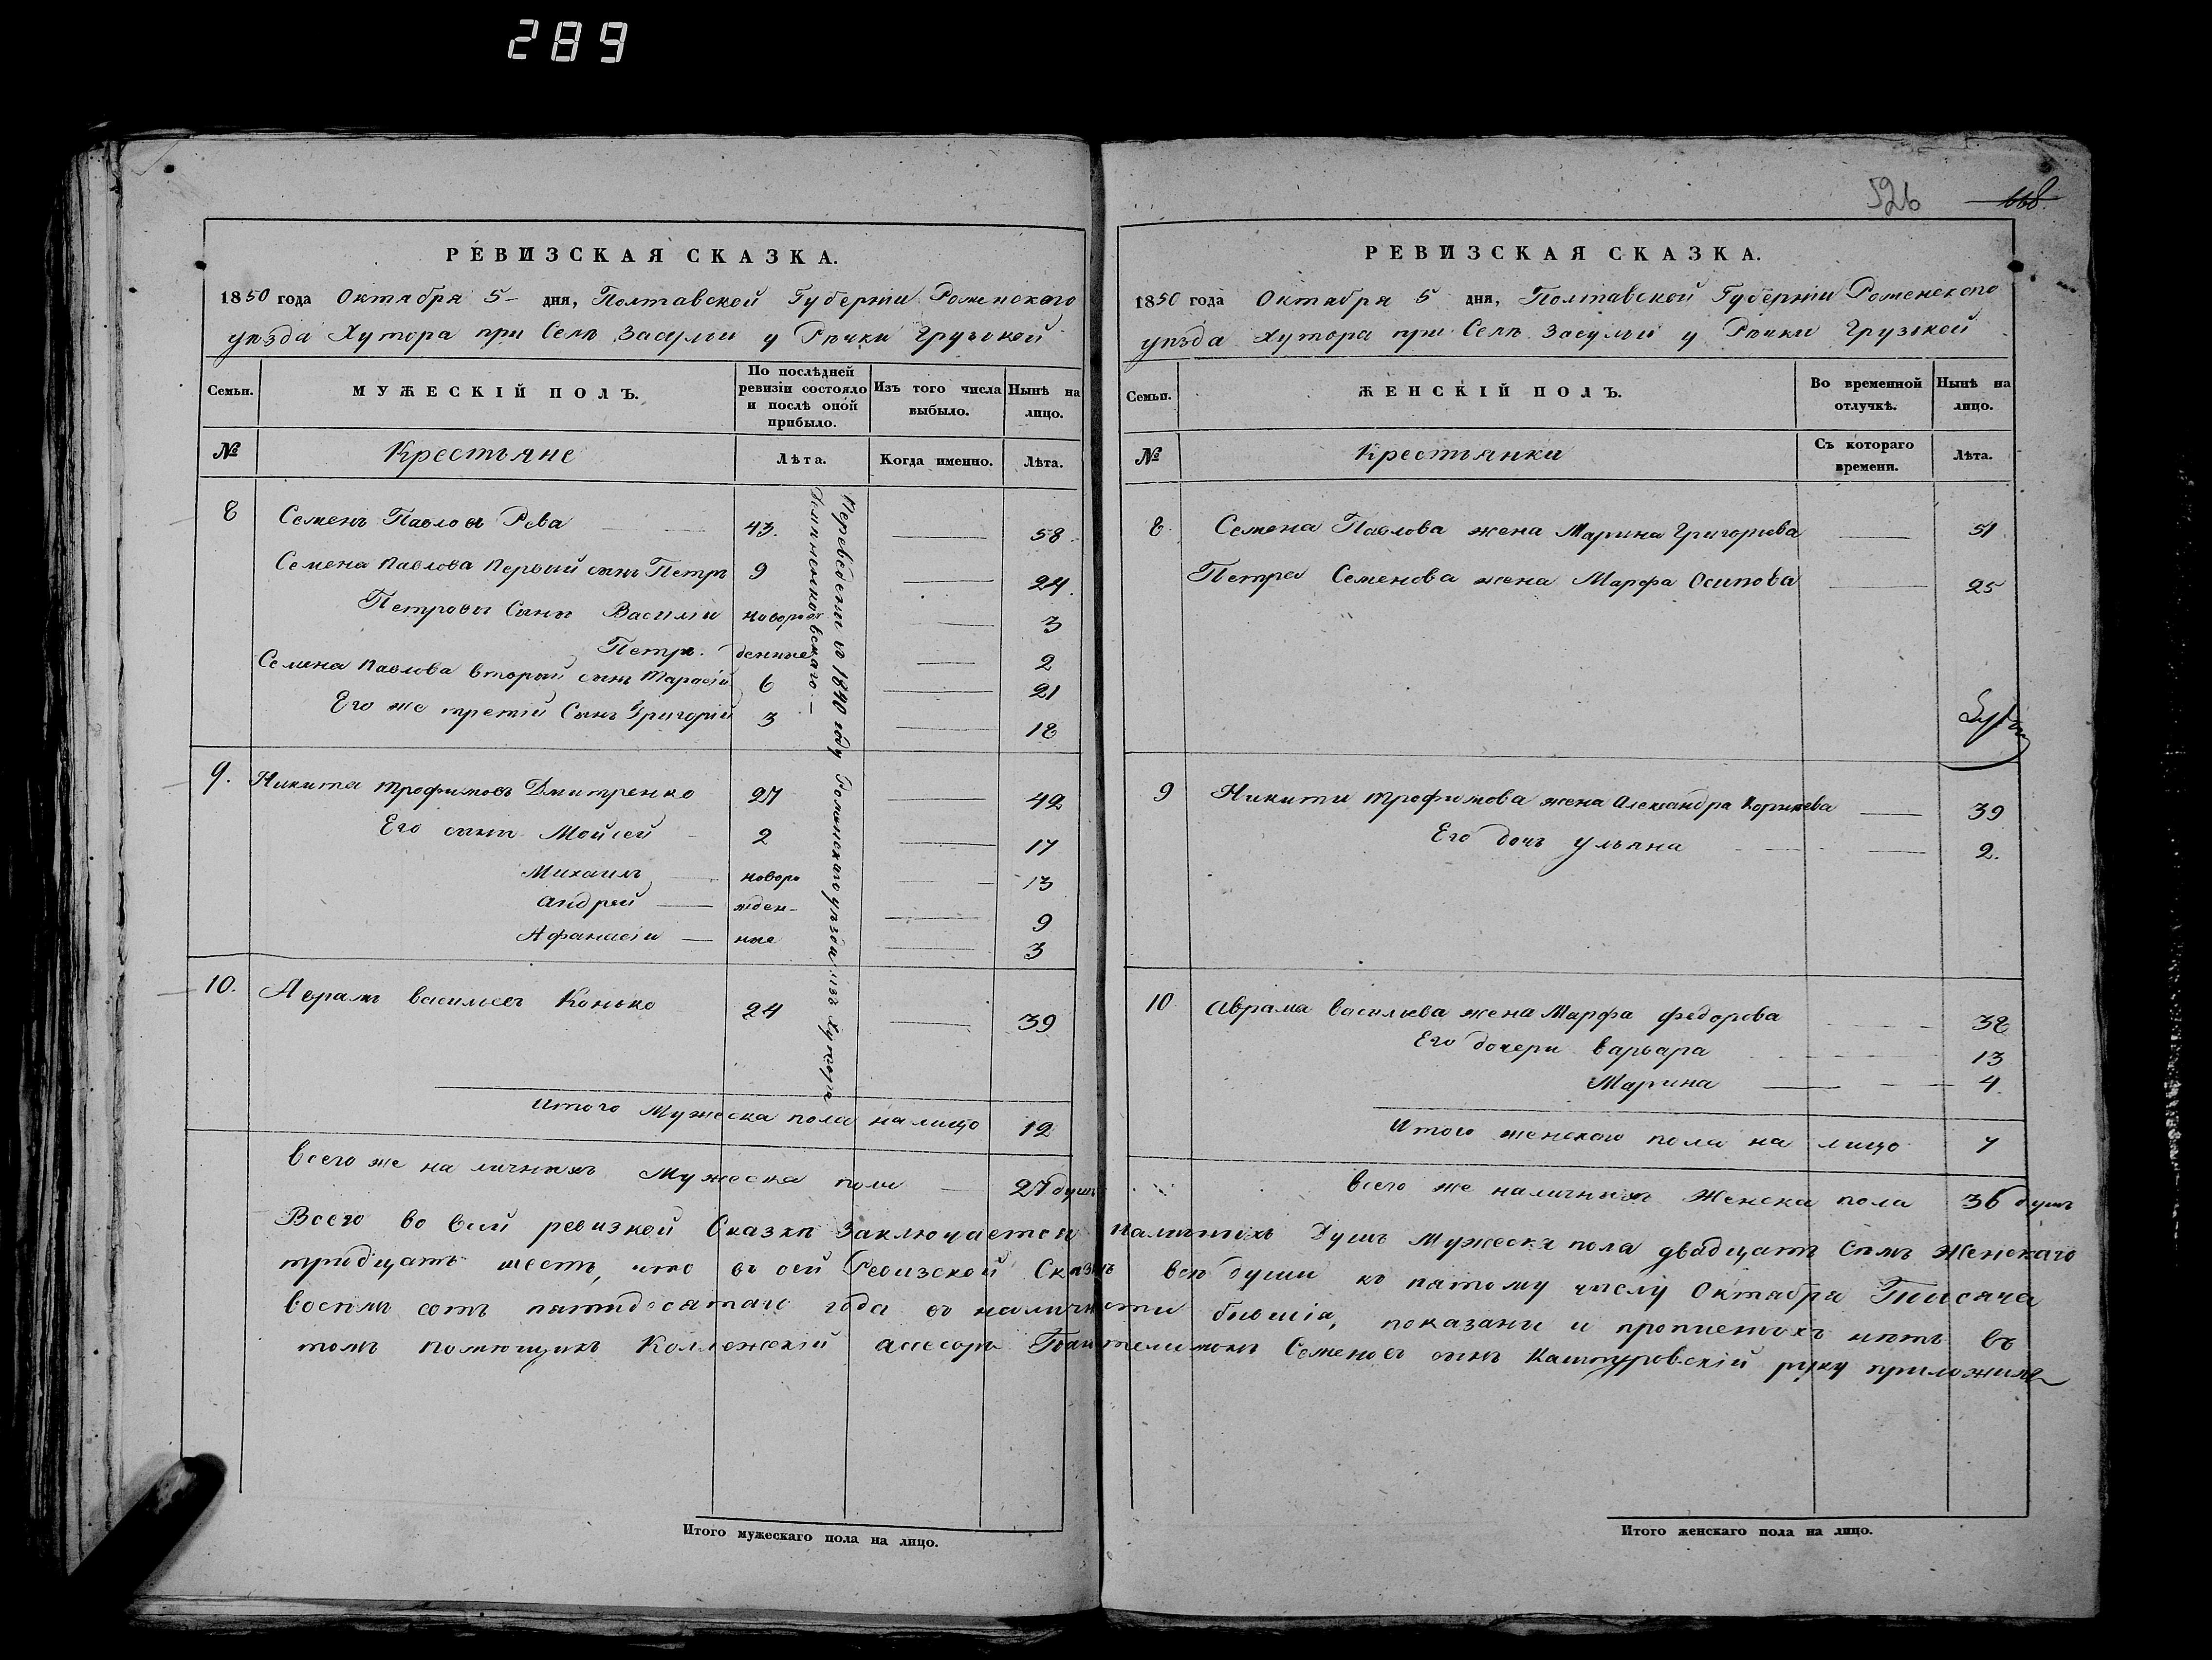 289
526
668
РЕВИЗСКАЯ СКАЗКА.
1850 года Октября 5 дня, Полтавской Губернiи Роменского
уезда Хутора при Селѣ Засульи у Рѣчки Грузской
Семьи.
МУЖЕСКІЙ ПОЛЪ.
По послѣдней ревизіи состояло и послѣ оной прибыло.
Изъ того числа выбыло.
Нынѣ на лицо.
№
Крестьяне
Лѣта.
Когда именно.
Лѣта.
8 Семенъ Павловъ Рева 43. 58.
Семена Павлова Первый сынъ Петръ 9 24.
Петровы Сынъ Василiй новорож 3
Петръ. денные 2
Семена Павлова второй сынъ Тарасiй 6 21
Его же третiй Сынъ Григорiй 3 18
Переведены въ 1840 году Роменского уезда изъ Хутора
9. Никита Трофимовъ Дмитренко 27 42
Его сынъ Мойсей 2 17
Михаилъ новоро 13
Андрей жден- 9
Афанасiй ные 3
10. Аврамъ Васильевъ Конько 24 39
Итого Мужеска пола налицо 12
Всего же наличныхъ Мужеска пола 27 душъ
РЕВИЗСКАЯ СКАЗКА.
1850 года Октября 5 дня, Полтавской Губернiи Роменского
уезда Хутора при Селѣ Засульи у Рѣчки Грузской
Семьи.
ЖЕНСКІЙ ПОЛЪ.
Во временной отлучкѣ.
Нынѣ на лицо.
№
Крестьянки
Съ котораго времени.
Лѣта.
8. Семена Павлова жена Марина Григорьева 51
Петра Семенова жена Марфа Осипова 25
9 Никиты Трофимова жена Александра Корнѣева 39
Его дочь Ульяна 2.
10 Аврама Васильева жена Марфа Федорова 38
Его дочери Варвара 13
Марина 4
Итого женского пола на лицо 7
Всего же наличныхъ Женска пола 36 душъ
Всего во всей ревизкой Сказкѣ Заключается наличныхъ Душъ Мужеска пола двадцать Семь Женскаго
тридцать шесть, что въ сей Ревизской Сказкѣ всѣ души къ пятому числу Октября Тысяча
восемь сотъ пятидесятаго года въ наличности бывшiя, показаны и прописныхъ нѣтъ въ
томъ помѣщикъ Коллежскiй ассесоръ Пантелимонъ Семеновъ сынъ Каштуровскiй руку приложилъ
Итого мужескаго пола на лицо.
Итого женскаго пола на лицо.